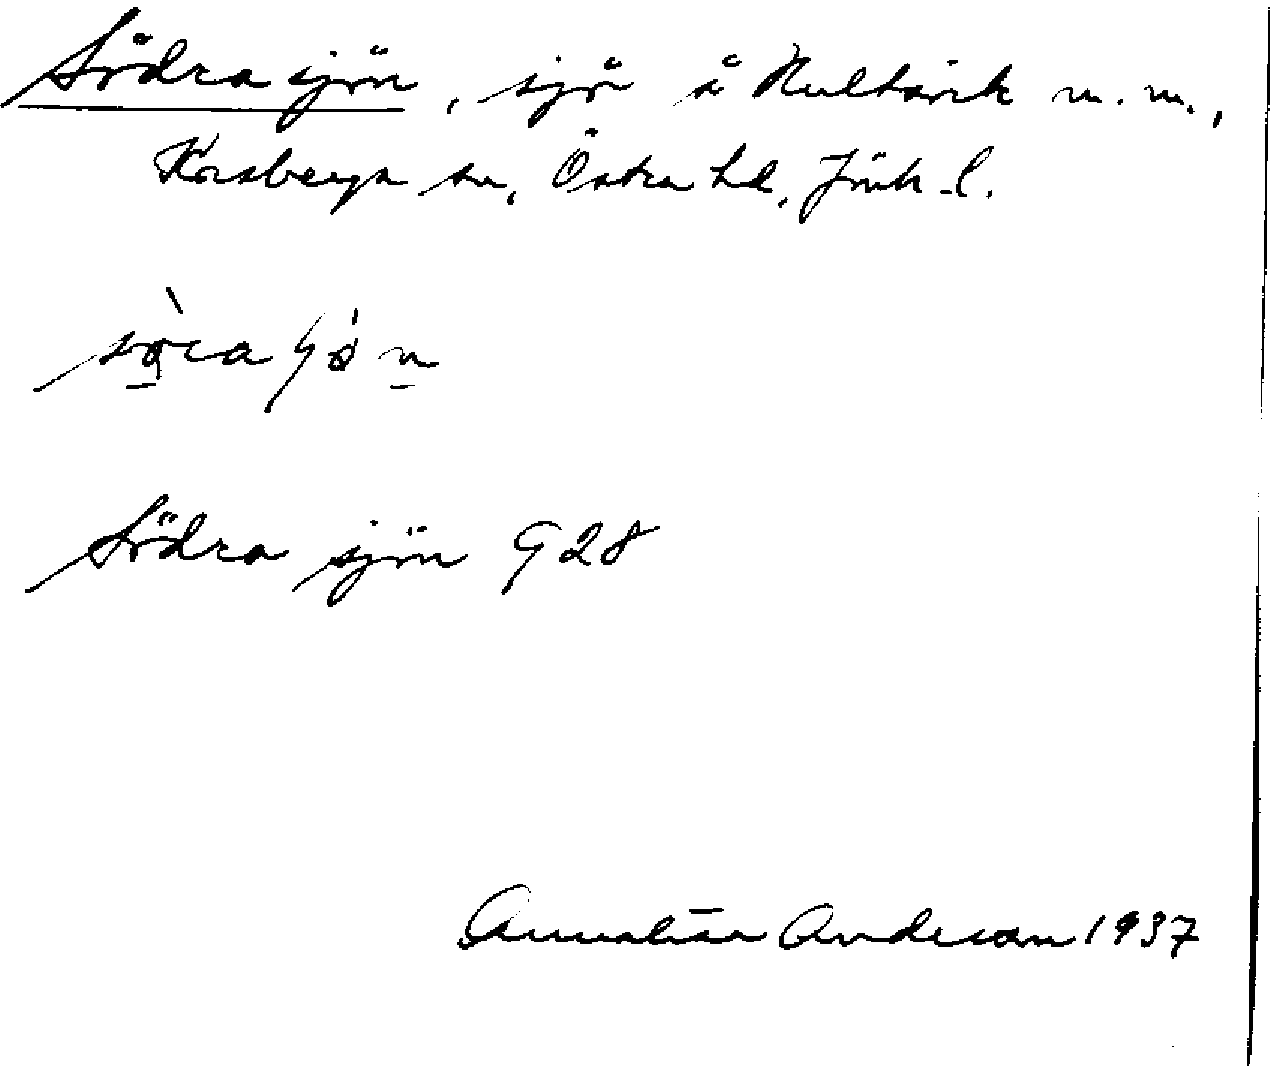 Södra sjön, sjö å Hultarik m.m.,
Korsberga sn, Östra hd, Jönk. l.
Södra sjön G28
Annastina Anderson 1937